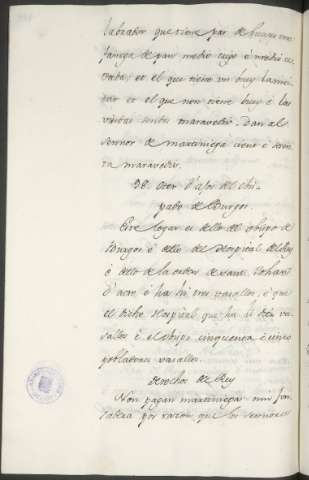 labrador que tiene par de bueys una
fanega de pan medio trigo é medio ce-
vada; et el que tiene un buey la mei-
tad et el que non tiene buey é las
viudas sendos maravedis. Dan al
sennor de martiniega ciento é seten-
ta maravedis.
38. Oter d'ajos del obis-
pado de Burgos
Este logar es dello del obispo de
Burgos é dello del Hospital del Rey
é dello de la orden de sant Johan
d'acre é ha hi tres vasallos, é que
el dicho Hospital que ha hi diez va-
sallos é el obispo cinquenta é cinco
pobladores vasallos.
derechos del Rey
Non pagan martiniega nin fon-
sadera por razon que los sennores